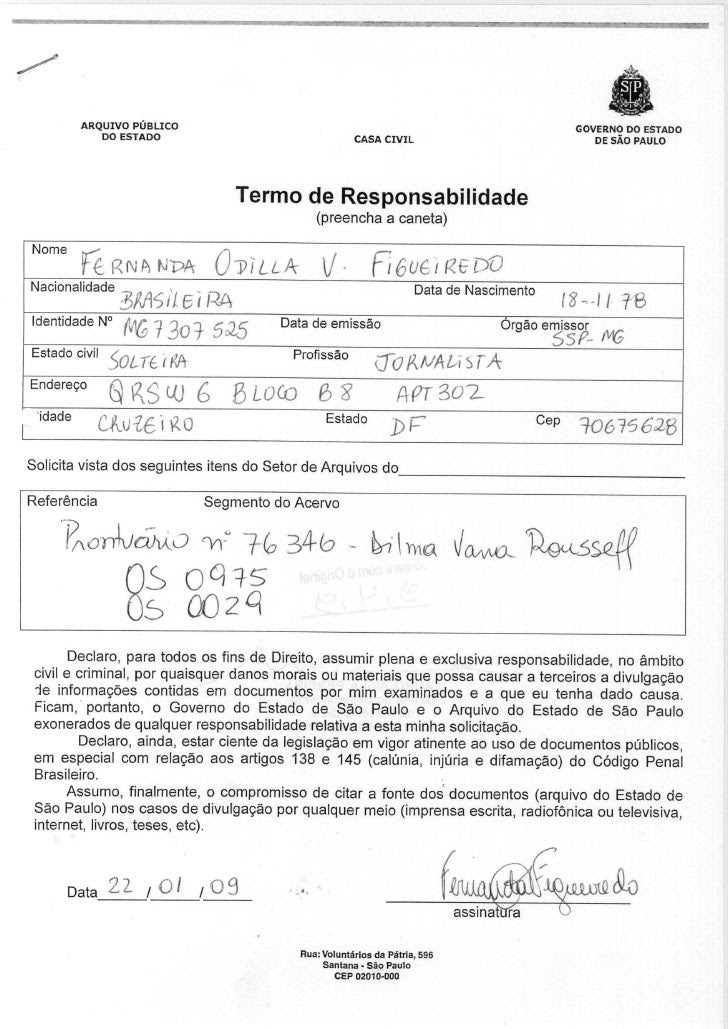 SP
ARQUIVO PÚBLICO
DO ESTADO
CASA CIVIL
GOVERNO DO ESTADO
DE SÃO PAULO
Termo de Responsabilidade
(preencha a caneta)
Nome FERNANDA ODILLA V. FIGUEIREDO
Nacionalidade BRASILEIRA Data de Nascimento 18-11-78
Identidade Nº MG7307525 Data de emissão Órgão emissor SSP-MG
Estado civil SOLTEIRA Profissão JORNALISTA
Endereço QRSW 6 BLOCO B8 APT 302
idade CRUZEIRO Estado DF Cep 70675628
Solicita vista dos seguintes itens do Setor de Arquivos do
Referência Segmento do Acervo
Prontuário nº 76346 - Dilma Vana Rousseff
OS 0975
OS 0029
Declaro, para todos os fins de Direito, assumir plena e exclusiva responsabilidade, no âmbito
civil e criminal, por quaisquer danos morais ou materiais que possa causar a terceiros a divulgação
de informações contidas em documentos por mim examinados e a que eu tenha dado causa.
Ficam, portanto, o Governo do Estado de São Paulo e o Arquivo do Estado de São Paulo
exonerados de qualquer responsabilidade relativa a esta minha solicitação.
Declaro, ainda, estar ciente da legislação em vigor atinente ao uso de documentos públicos,
em especial com relação aos artigos 138 e 145 (calúnia, injúria e difamação) do Código Penal
Brasileiro.
Assumo, finalmente, o compromisso de citar a fonte dos documentos (arquivo do Estado de
São Paulo) nos casos de divulgação por qualquer meio (imprensa escrita, radiofônica ou televisiva,
internet, livros, teses, etc).
Data 22 / 01 / 09 Fernanda Figueiredo
assinatura
Rua: Voluntários da Pátria, 596
Santana - São Paulo
CEP 02010-000